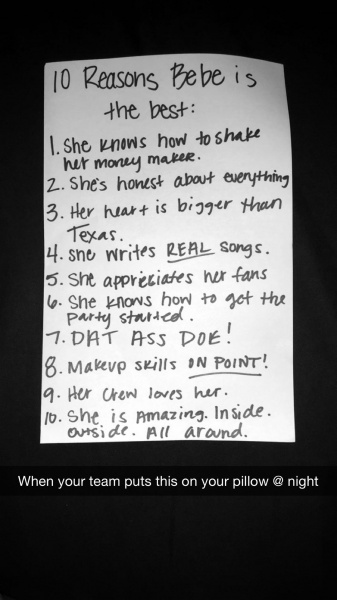 10 Reasons Bebe is
the best:
1. She knows how to shake
her money maker.
2. She's honest about everything
3. Her heart is bigger than
Texas.
4. She writes REAL songs.
5. She appreciates her fans
6. She knows how to get the
party started.
7. DAT ASS DOE!
8. Makeup skills ON POINT!
9. Her crew loves her.
10. She is Amazing. Inside.
Outside. All around.
When your team puts this on your pillow @ night